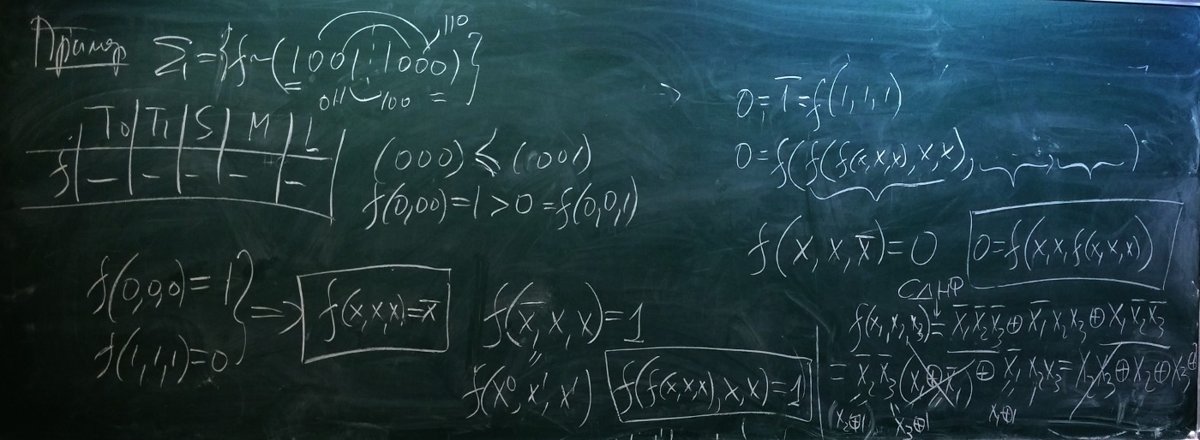 Пример Σ₁ = {f ~ (1001 1000)} 110
011 100
T₀ T₁ S M L
f − − − − −
(000) ⩽ (001)
f(0,0,0) = 1 > 0 = f(0,0,1)
f(0,0,0) = 1
f(1,1,1) = 0
} ⇒ f(x,x,x) = x̄
f(x̄, x, x) = 1
f(x⁰, x¹, x¹)
f(f(x,x,x), x, x) = 1
0 = 1̄ = f(1,1,1)
0 = f(f(f(x,x,x),x,x), , )
f(x, x, x̄) = 0
0 = f(x,x,f(x,x,x))
СДНФ
f(x₁,x₂,x₃) = x̄₁x̄₂x̄₃ ⊕ x̄₁x₂x₃ ⊕ x₁x̄₂x̄₃
= x̄₂x̄₃(x₁⊕x̄₁) ⊕ x̄₁x₂x₃ = x₂x₃⊕x₂⊕x₃⊕
x₂⊕1 x₃⊕1 x₁⊕1